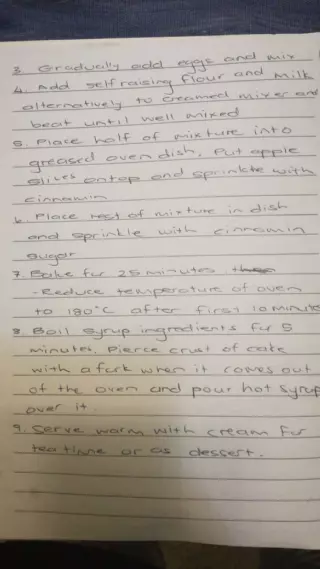 3. Gradually add eggs and mix
4. Add selfraising flour and milk
alternatively to creamed mixer and
beat until well mixed
5. Place half of mixture into
greased oven dish. Put apple
slices ontop and sprinkle with
cinnamin
6. Place rest of mixture in dish
and sprinkle with cinnamin
sugar
7. Bake for 25 minutes
-Reduce temperature of oven
to 180°C after first 10 minute
8. Boil syrup ingredients for 5
minutes. Pierce crust of cake
with a fork when it comes out
of the oven and pour hot syrup
over it.
9. Serve warm with cream for
teatime or as dessert.